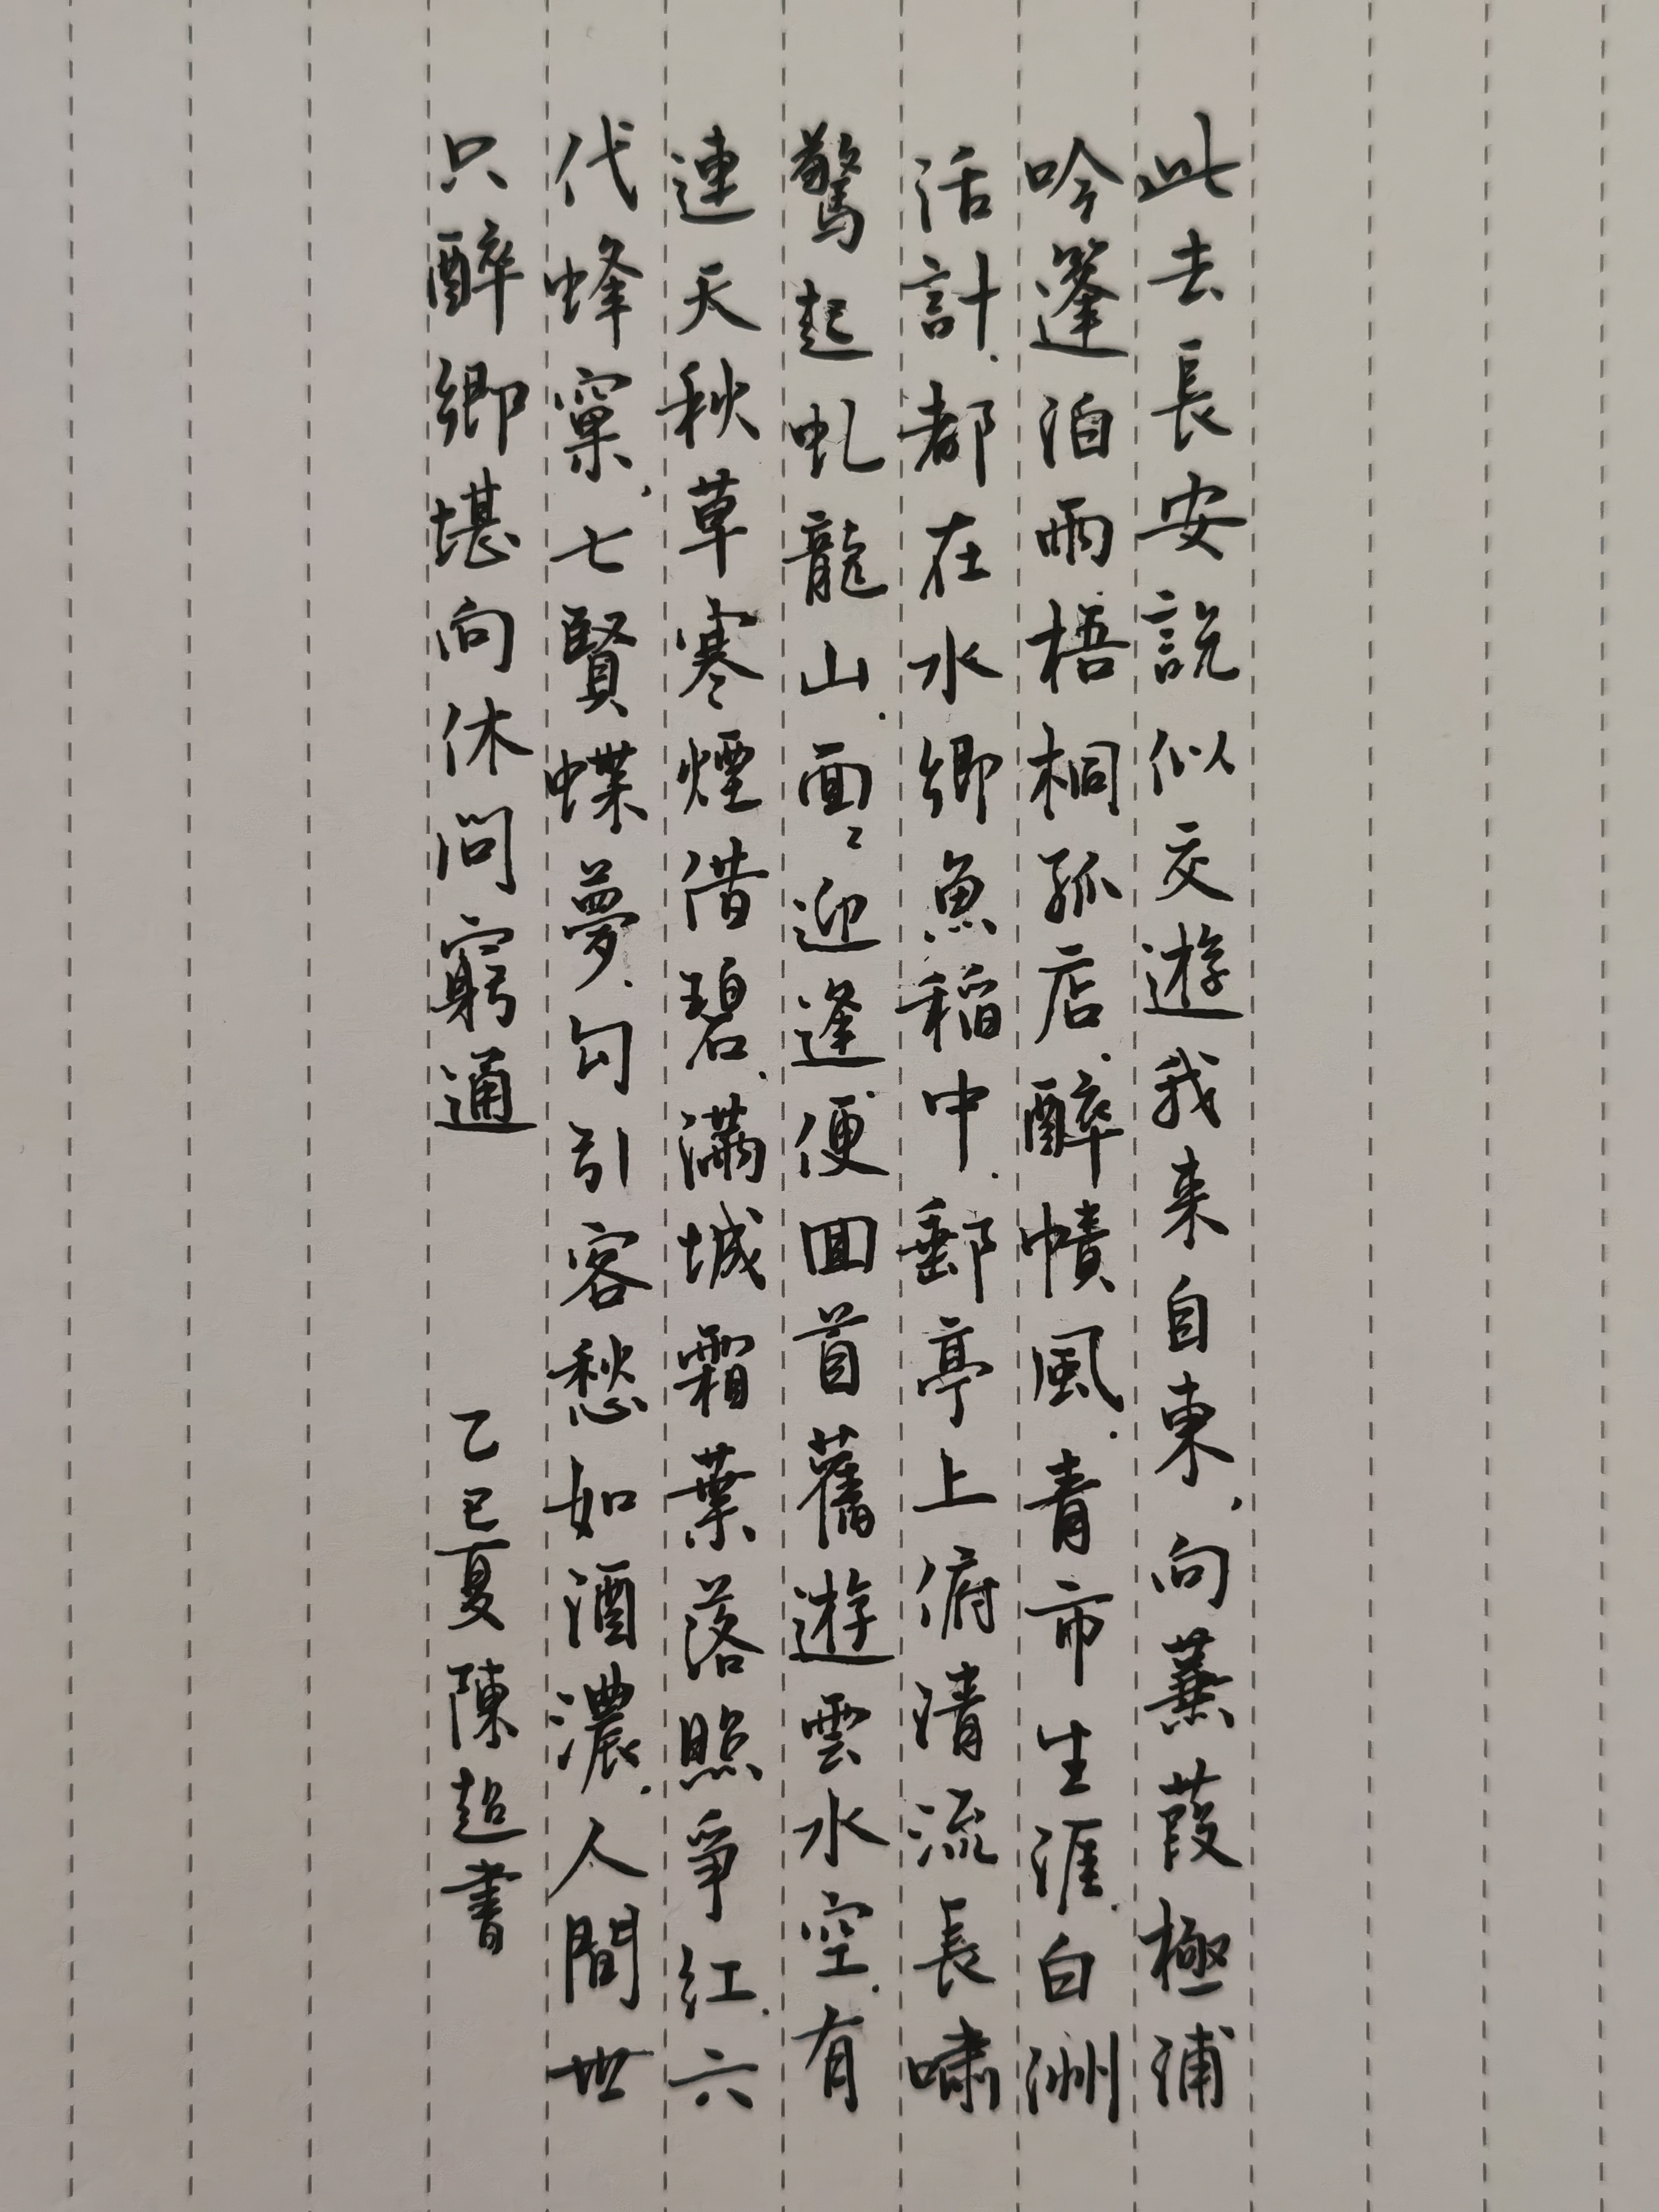 此去長安説似交遊我来自東，向蒹葭極浦
吟篷泊雨梧桐孤店、醉幘風、青市生涯、白洲
活計、都在水鄉魚稻中、郵亭上俯清流長嘯
驚起虬龍山、面々迎逢、便回首舊遊雲水空、有
連天秋草寒煙借碧、滿城霜葉落照爭紅、六
代蜂窠，七賢蝶夢、勾引客愁如酒濃、人間世
只醉鄉堪向休問窮通
乙巳夏陳超書